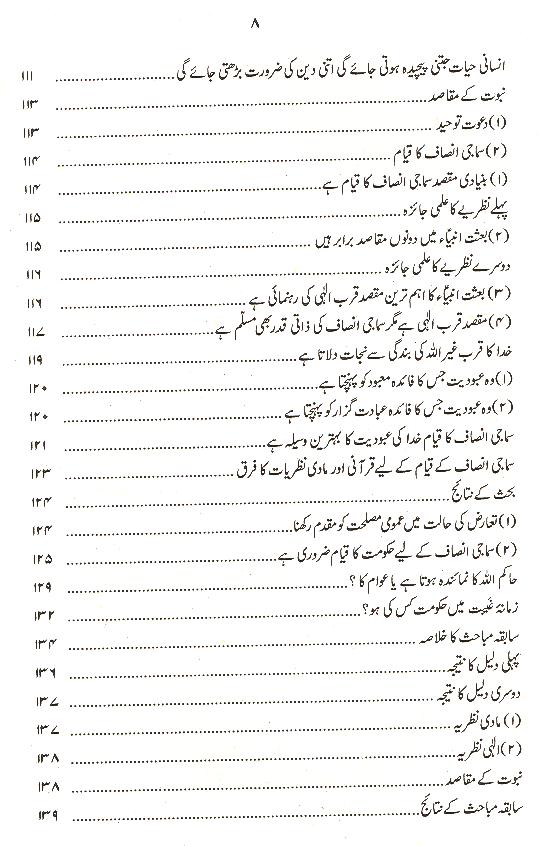 ۸
انسانی حیات جتنی پیچیدہ ہوتی جائے گی اتنی دین کی ضرورت بڑھتی جائے گی ........ ۱۱۱
نبوت کے مقاصد ........ ۱۱۳
(۱) دعوت توحید ........ ۱۱۳
(۲) سماجی انصاف کا قیام ........ ۱۱۴
(۱) بنیادی مقصد سماجی انصاف کا قیام ہے ........ ۱۱۴
پہلے نظریے کا علمی جائزہ ........ ۱۱۵
(۲) بعثت انبیاؑء میں دونوں مقاصد برابر ہیں ........ ۱۱۵
دوسرے نظریے کا علمی جائزہ ........ ۱۱۶
(۳) بعثت انبیاؑء کا اہم ترین مقصد قرب الٰہی کی رہنمائی ہے ........ ۱۱۶
(۴) مقصد قرب الٰہی ہے مگر سماجی انصاف کی ذاتی قدر بھی مسلّم ہے ........ ۱۱۷
خدا کا قرب غیر اللہ کی بندگی سے نجات دلاتا ہے ........ ۱۱۹
(۱) وہ عبودیت جس کا فائدہ معبود کو پہنچتا ہے ........ ۱۲۰
(۲) وہ عبودیت جس کا فائدہ عبادت گزار کو پہنچتا ہے ........ ۱۲۰
سماجی انصاف کا قیام خدا کی عبودیت کا بہترین وسیلہ ہے ........ ۱۲۱
سماجی انصاف کے قیام کے لیے قرآنی اور مادی نظریات کا فرق ........ ۱۲۳
بحث کے نتائج ........ ۱۲۴
(۱) تعارض کی حالت میں عمومی مصلحت کو مقدم رکھنا ........ ۱۲۴
(۲) سماجی انصاف کے لیے حکومت کا قیام ضروری ہے ........ ۱۲۵
حاکم اللہ کا نمائندہ ہوتا ہے یا عوام کا ؟ ........ ۱۲۹
زمانۂ غَیبت میں حکومت کس کی ہو ؟ ........ ۱۳۲
سابقہ مباحث کا خلاصہ ........ ۱۳۴
پہلی دلیل کا نتیجہ ........ ۱۳۶
دوسری دلیل کا نتیجہ ........ ۱۳۷
(۱) مادی نظریہ ........ ۱۳۷
(۲) الٰہی نظریہ ........ ۱۳۸
نبوت کے مقاصد ........ ۱۳۸
سابقہ مباحث کے نتائج ........ ۱۳۹